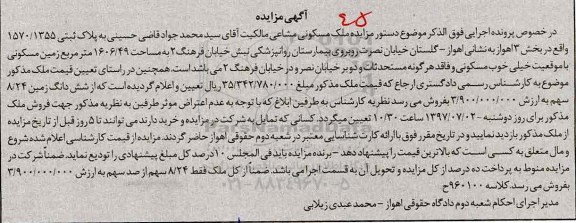 آگهی مزایده
۴۵
در خصوص پرونده اجرایی فوق الذکر موضوع دستور مزایده ملک مسکونی مشاعی مالکیت آقای سید محمد جواد قاضی حسینی به پلاک ثبتی ۱۵۷۰/۱۳۵۵
واقع در بخش ۳ اهواز به نشانی اهواز - گلستان خیابان نصرت روبروی بیمارستان روانپزشکی نبش خیابان فرهنگ ۲ به مساحت ۱۶۰۶/۴۹ متر مربع زمین مسکونی
با موقعیت خیلی خوب مسکونی و فاقد هر گونه مستحدثات و دو بر خیابان نصر و در خیابان فرهنگ ۲ می باشد است. همچنین در راستای تعیین قیمت ملک مذکور
موضوع به کارشناس رسمی دادگستری ارجاع که قیمت ملک مذکور مبلغ ۳۵/۳۴۲/۷۸۰/۰۰۰ ریال تعیین و اعلام گردیده است که از شش دانگ زمین ۸/۲۴
سهم به ارزش ۳/۹۰۰/۰۰۰/۰۰۰ بفروش می رسد نظریه کارشناس به طرفین ابلاغ که با توجه به عدم اعتراض موثر طرفین به نظریه مذکور جهت فروش ملک
مذکور برای روز دوشنبه ۱۳۹۷/۰۷/۰۲ - ساعت ۱۰/۳۰ تعیین میگردد. کسانی که تمایل به شرکت در مزایده و خرید دارند می توانند تا ۵ روز قبل از تاریخ مزایده
از ملک مذکور بازدید نمایند و در تاریخ مقرر فوق با ارائه کارت شناسایی معتبر در شعبه دوم حقوقی اهواز حاضر گردند. مزایده از قیمت کارشناسی اعلام شده شروع
و مال متعلق به کسی است که بالاترین قیمت را پیشنهاد دهد - برنده مزایده باید فی المجلس ۱۰ درصد کل مبلغ پیشنهادی را تودیع نماید. ضمنا شرکت در
مزایده منوط به پرداخت ده درصد از کل مزایده و تحویل آن به قسمت اجرا می باشد. ضمنا از کل ملک فقط ۸/۲۴ سهم از صد سهم به ارزش ۳/۹۰۰/۰۰۰/۰۰۰
بفروش می رسد. کلاسه ۹۶۰۱۰۰ح
مدیر اجرای احکام شعبه دوم دادگاه حقوقی اهواز - محمد عبدی زیلابی
۰۲۱-۸۸۳۴۹۶۷۰-۵